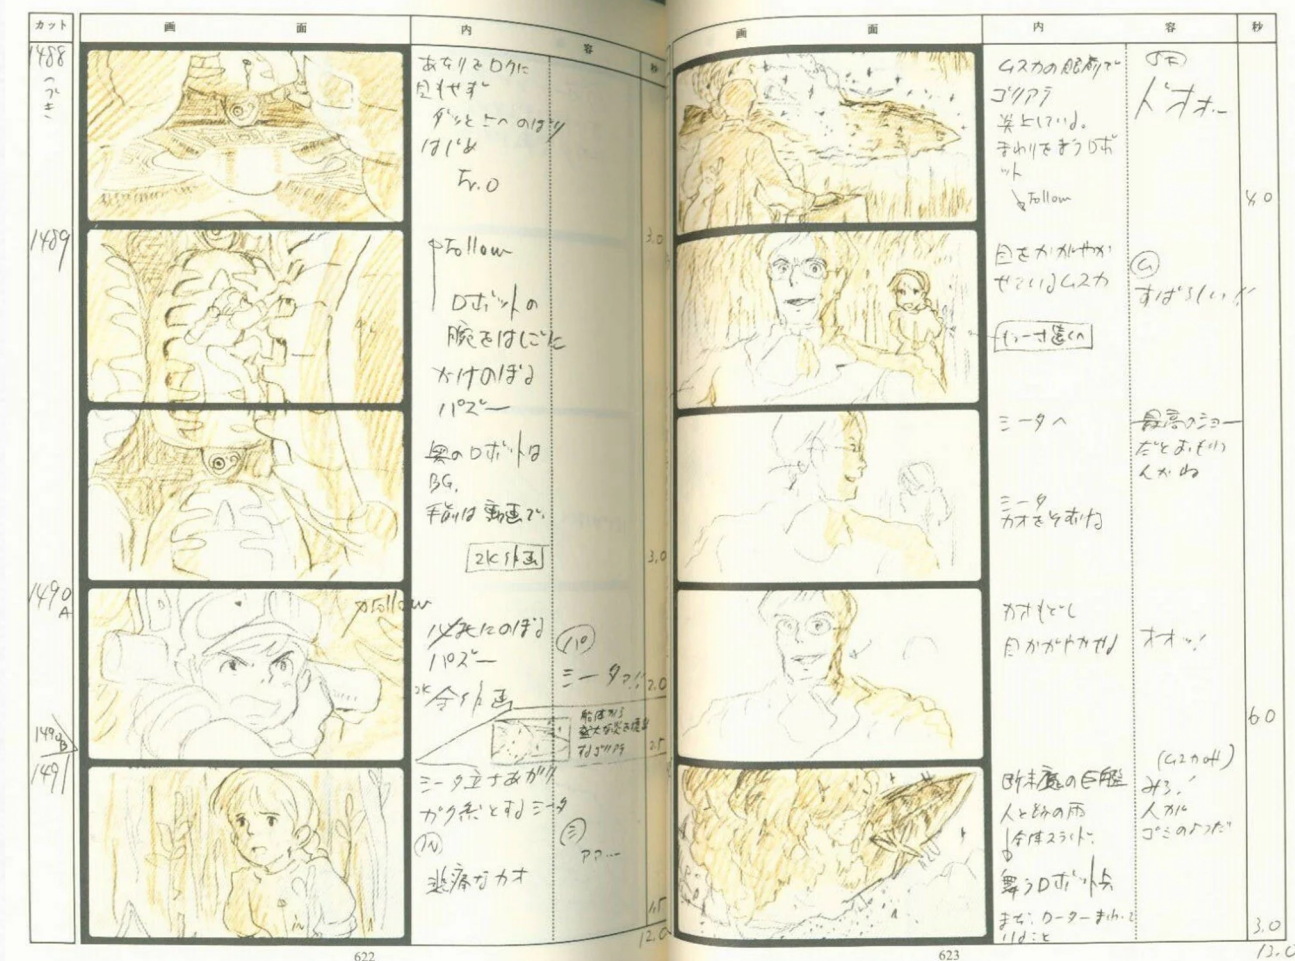 カット
画 面
内 容
秒
1488
つづき
あたりをロクに
目もせず
ダッと上へのぼり
はじめ
Fr.O
3.0
1489
Follow
ロボットの
腕をはしごに
かけのぼる
パズー
奥のロボットは
BG.
手前は動画で.
2K外画
3.0
1490
A
Follow
必死にのぼる
パズー
2K
全外画
パ
シータァ!!
2.0
1490
B
船体から
盛大な炎を噴出
するゴリアテ
2.5
1491
シータ立ちあがり
ガク然とするシータ
IN
悲痛なカオ
シ
アア…
1.5
12.0
622
画 面
内 容
秒
ムスカの眼前で
ゴリアテ
炎上している。
まわりをまうロボ
ット
Follow
(SE)
ドオォー
4.0
目をかがやか
せているムスカ
もう一寸遠くへ
ム
すばらしい!!
シータへ
シータ
カオをそむける
最高のショー
だとおもわ
んかね
カオもどし
目かがやかせ
オオッ!
6.0
断末魔の巨艦
人と砂の雨
全体スライド.
舞うロボット兵
まだ、ローターまわって
いること
(ムスカoff)
みろ!
人が
ゴミのようだ
3.0
13.0
623